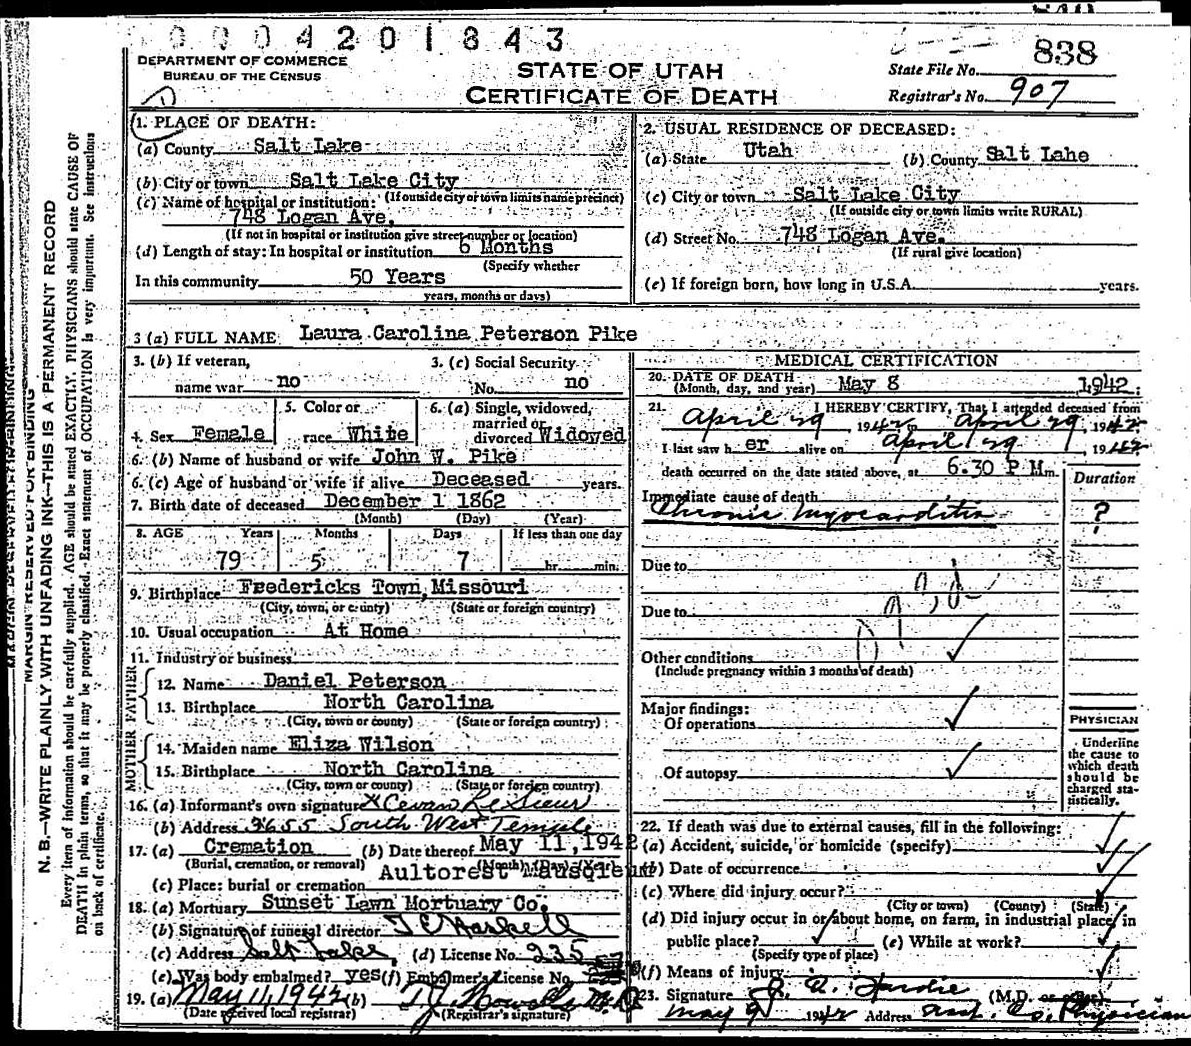 0004201843
DEPARTMENT OF COMMERCE
BUREAU OF THE CENSUS
STATE OF UTAH
CERTIFICATE OF DEATH
State File No. 838
Registrar's No. 907
1. PLACE OF DEATH:
(a) County Salt Lake
(b) City or town Salt Lake City
(If outside city or town limits name precinct)
(c) Name of hospital or institution:
748 Logan Ave.
(If not in hospital or institution give street number or location)
(d) Length of stay: In hospital or institution 6 Months
(Specify whether
In this community 50 Years
years, months or days)
2. USUAL RESIDENCE OF DECEASED:
(a) State Utah (b) County Salt Lahe
(c) City or town Salt Lake City
(If outside city or town limits write RURAL)
(d) Street No. 748 Logan Ave.
(If rural give location)
(e) If foreign born, how long in U.S.A. years.
3 (a) FULL NAME Laura Carolina Peterson Pike
3. (b) If veteran,
name war no
3. (c) Social Security
No. no
4. Sex Female
5. Color or
race White
6. (a) Single, widowed,
married or
divorced Widowed
6. (b) Name of husband or wife John W. Pike
6. (c) Age of husband or wife if alive Deceased years.
7. Birth date of deceased December 1 1862
(Month) (Day) (Year)
8. AGE Years Months Days If less than one day
79 5 7 hr. min.
9. Birthplace Fredericks Town, Missouri
(City, town, or county) (State or foreign country)
10. Usual occupation At Home
11. Industry or business
FATHER
12. Name Daniel Peterson
13. Birthplace North Carolina
(City, town or county) (State or foreign country)
MOTHER
14. Maiden name Eliza Wilson
15. Birthplace North Carolina
(City, town or county) (State or foreign country)
16. (a) Informant's own signature
(b) Address 3655 South West Temple
17. (a) Cremation (b) Date thereof May 11, 1942
(Burial, cremation, or removal) (Month) (Day) (Year)
(c) Place: burial or cremation Aultorest Mausoleum
18. (a) Mortuary Sunset Lawn Mortuary Co.
(b) Signature of funeral director
(c) Address Salt Lake (d) License No. 235
(e) Was body embalmed? yes (f) Embalmer's License No.
19. (a) May 11, 1942 (b)
(Date received local registrar) (Registrar's signature)
MEDICAL CERTIFICATION
20. DATE OF DEATH
(Month, day, and year) May 8 1942
21. I HEREBY CERTIFY, That I attended deceased from
April 29 1942 to April 29, 1942
I last saw h er alive on April 29, 1942
death occurred on the date stated above, at 6:30 P M m.
Duration
Immediate cause of death
Chronic Myocarditis ?
Due to
Due to
Other conditions
(Include pregnancy within 3 months of death)
Major findings:
Of operations
Of autopsy
PHYSICIAN
Underline
the cause to
which death
should be
charged sta-
tistically.
22. If death was due to external causes, fill in the following:
(a) Accident, suicide, or homicide (specify)
(b) Date of occurrence
(c) Where did injury occur?
(City or town) (County) (State)
(d) Did injury occur in or about home, on farm, in industrial place, in
public place? (e) While at work?
(Specify type of place)
(f) Means of injury
23. Signature Hardie (M.D. or other)
May 9 1942 Address Asst. Co. Physician
MARGIN RESERVED FOR BINDING
N. B.—WRITE PLAINLY WITH UNFADING INK—THIS IS A PERMANENT RECORD
Every item of information should be carefully supplied. AGE should be stated EXACTLY. PHYSICIANS should state CAUSE OF
DEATH in plain terms, so that it may be properly classified. Exact statement of OCCUPATION is very important. See instructions
on back of certificate.